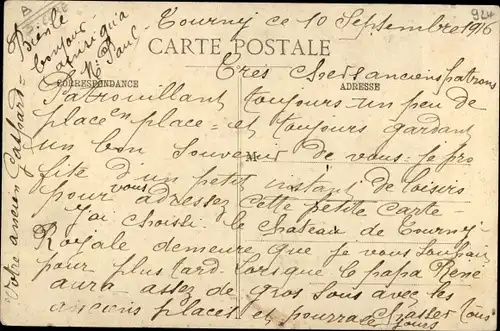 Tourny ce 10 Septembre 1916
CARTE POSTALE
CORRESPONDANCE
ADRESSE
Très chers anciens patrons
Patrouillant toujours un peu de
place en place = et toujours gardant
un bon souvenir de vous = je pro
fite d'un petit instant de loisirs
pour vous adresser cette petite carte =
J'ai choisi = le chateau de Tourny =
Royale demeure que je vous souhaite
pour plus tard lorsque le papa René
aura assez de gros sous avec les
anciens placet et pourra chasser tous
jours
Votre ancien
bonjour
ainsi qu'a
M Paul
B
924